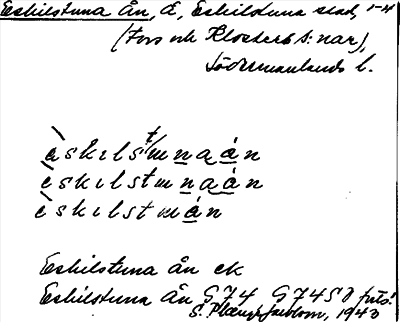 Eskilstuna ån, å, Eskilstuna stad, 1-4
(Fors och Klosters s:nar),
Södermanlands l.
èskilstunaán
èskilstmnaán
èskilstmán
Eskilstuna ån ek
Eskilstuna ån G74 G74SO
S. 1940